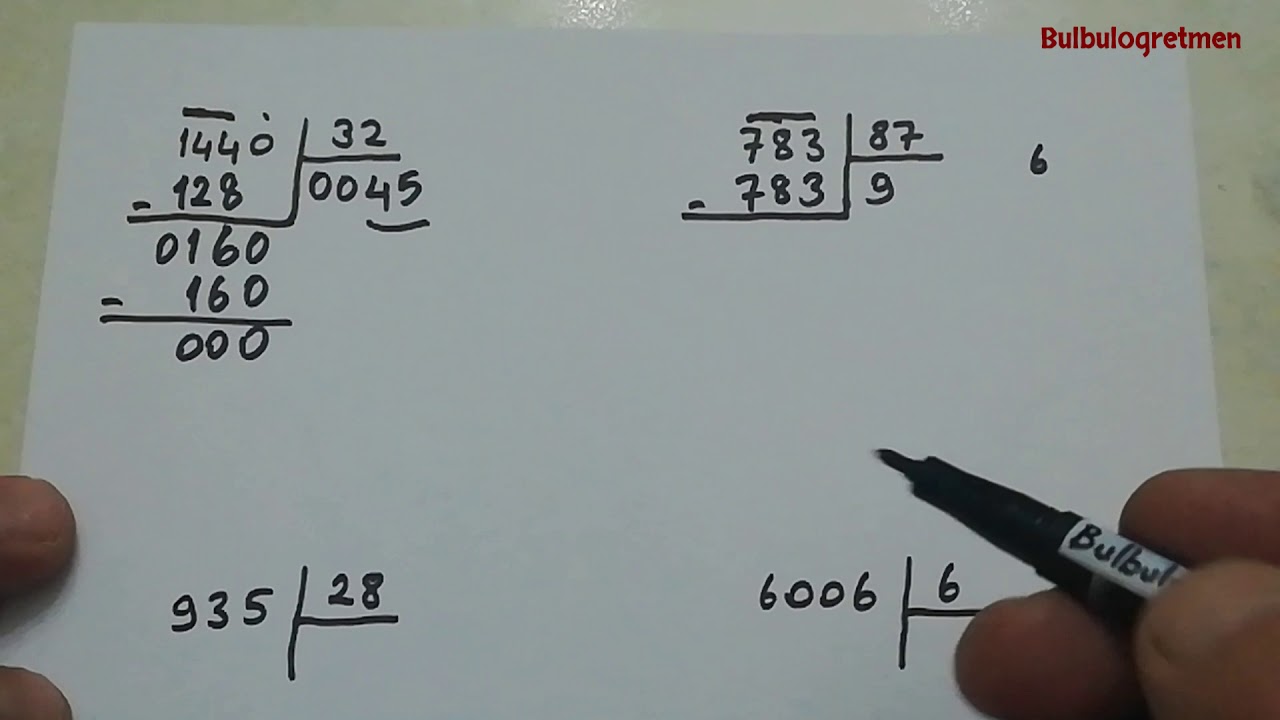 Bulbulogretmen
1440 32
- 128 0045
0160
- 160
000
783 87
- 783 9
6
935 28
6006 6
Bulbul